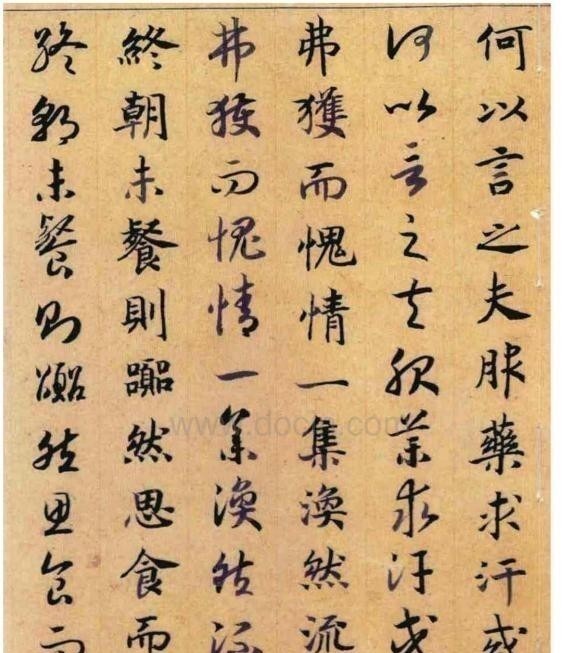 何以言之夫服藥求汗或
何以言之夫服藥求汗或
弗獲而愧情一集渙然流
弗獲而愧情一集渙然流
終朝未餐則囂然思食而
終朝未餐則囂然思食而
www.docin.com